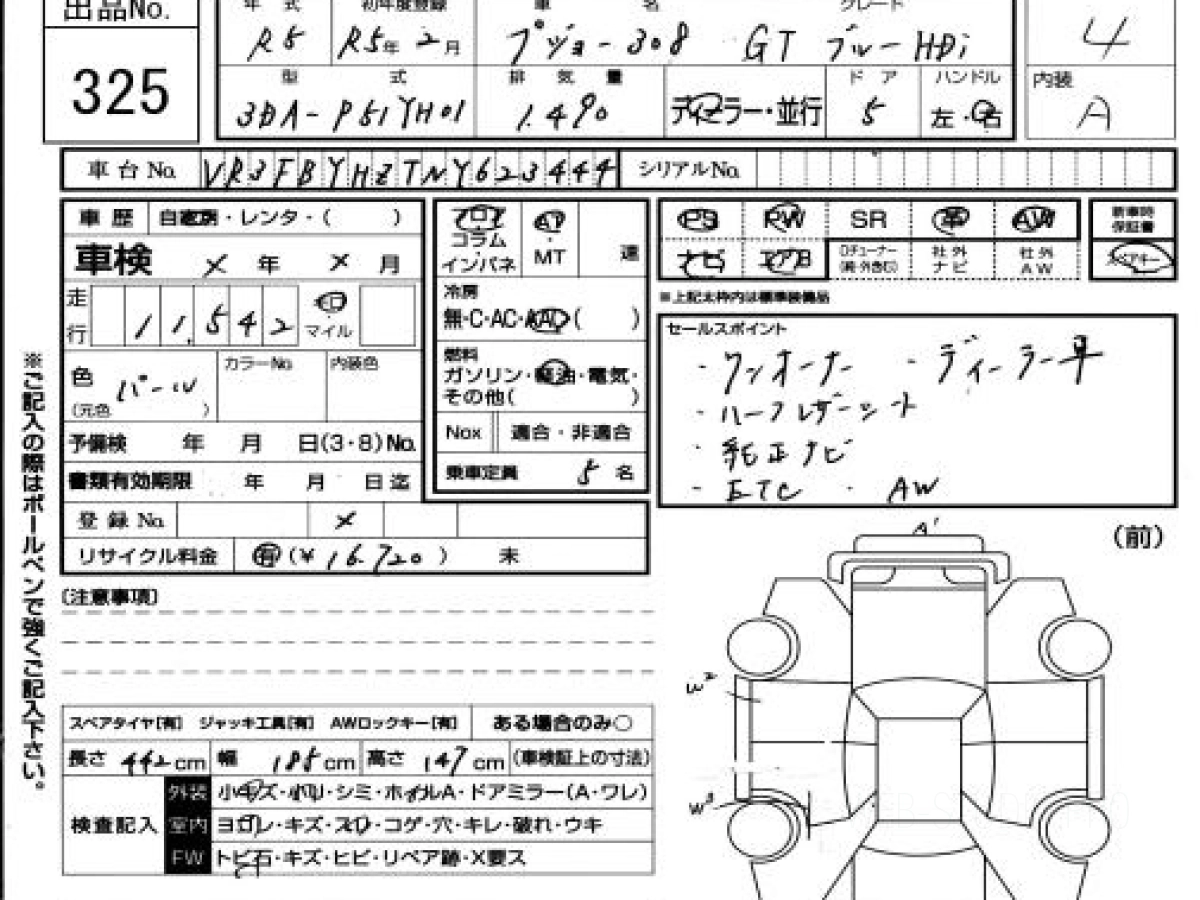 出品No.
325
年式 R5
初年度登録 R5年2月
車名 プジョー308
グレード GT ブルーHDi
4
型式 3DA-P51YH01
排気量 1.490
ディーラー・並行
ドア 5
ハンドル 左・右
内装 A
車台No. VR3FBYHZTNY623444
シリアルNo.
車歴 自家用・レンタ・( )
車検 × 年 × 月
走行 11,542 キロ マイル
色 パール (元色 )
カラーNo.
内装色
予備検 年 月 日(3・8)No.
書類有効期限 年 月 日迄
登録No. ×
リサイクル料金 有(¥16.720) 未
フロア コラム インパネ
AT・MT 速
冷房
無・C・AC・AAC( )
燃料
ガソリン・軽油・電気・
その他( )
Nox 適合・非適合
乗車定員 5名
PS PW SR 革 AW 新車時保証書
ナビ エアB Dチューナー(純・外含む) 社外ナビ 社外AW スペアキー
※上記太枠内は標準装備品
セールスポイント
・ワンオーナー ・ディーラー車
・ハーフレザーシート
・純正ナビ
・ETC ・AW
(前)
A1
W2
W3
〔注意事項〕
スペアタイヤ[有] ジャッキ工具[有] AWロックキー[有] ある場合のみ○
長さ 442cm 幅 185cm 高さ 147cm (車検証上の寸法)
検査記入
外装 小キズ・小凹・シミ・ホイルA・ドアミラー(A・ワレ)
室内 ヨゴレ・キズ・スレ・コゲ・穴・キレ・破れ・ウキ
FW トビ石・キズ・ヒビ・リペア跡・X要ス
※ご記入の際はボールペンで強くご記入下さい。